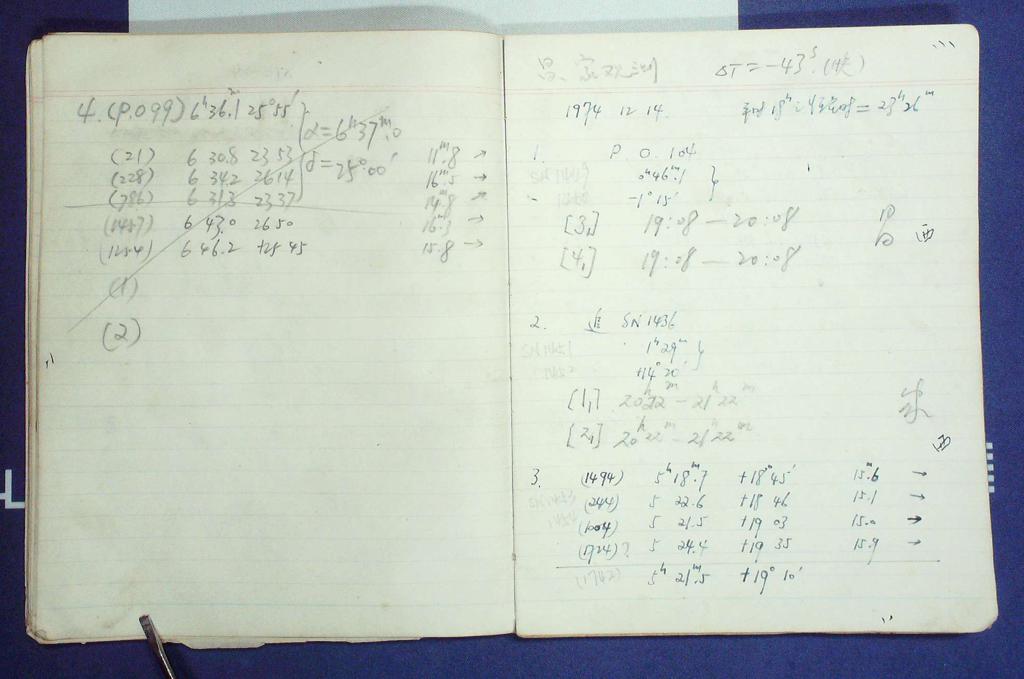 4. (P.099) 6ʰ36.1ᵐ 25°55′
α = 6ʰ37ᵐ.0
(21) 6 30.8 23 53 11ᵐ.8 →
δ = 25°.00′
(228) 6 34.2 26 14 16ᵐ.5 →
(786) 6 31.3 23 37 14ᵐ.8 →
(1457) 6 43.0 26 50 16ᵐ.3 →
(1254) 6 46.2 +25 45 15.8 →
(1)
(2)
ΔT = -43ˢ. (快)
1974 12 14. = 23ʰ26ᵐ
1. P. O. 104
0ʰ46ᵐ.1
-1°15′
[3₁] 19:08 — 20:08
[4₁] 19:08 — 20:08
西
2. 追 SN 1436
SN 1451
1ʰ29ᵐ
1452
+14°20′
[1₁] 20ʰ22ᵐ — 21ʰ22ᵐ
[2₁] 20ʰ22ᵐ — 21ʰ22ᵐ
西
3. (1494) 5ʰ18ᵐ.7 +18°45′ 15ᵐ.6 →
SN 1453
(244) 5 22.6 +18 46 15.1 →
1454
(1004) 5 21.5 +19 03 15.0 →
(1924)? 5 24.4 +19 35 15.9 →
(1742) 5ʰ21ᵐ.5 +19°10′